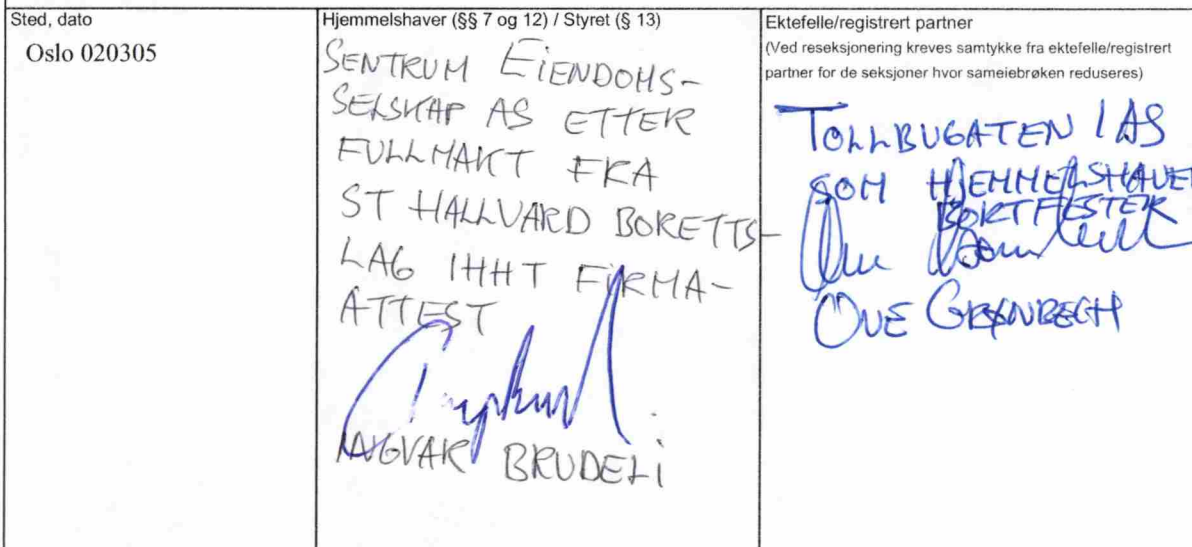 Sted, dato
Oslo 020305
Hjemmelshaver (§§ 7 og 12) / Styret (§ 13)
SENTRUM EIENDOMS-
SELSKAP AS ETTER
FULLMAKT FRA
ST HALLVARD BORETTS-
LAG IHHT FIRMA-
ATTEST
INGVAR BRUDELI
Ektefelle/registrert partner
(Ved reseksjonering kreves samtykke fra ektefelle/registrert
partner for de seksjoner hvor sameiebrøken reduseres)
TOLLBUGATEN 1 AS
SOM HJEMMELSHAVER
BORTFESTER
OVE GRØNBECH